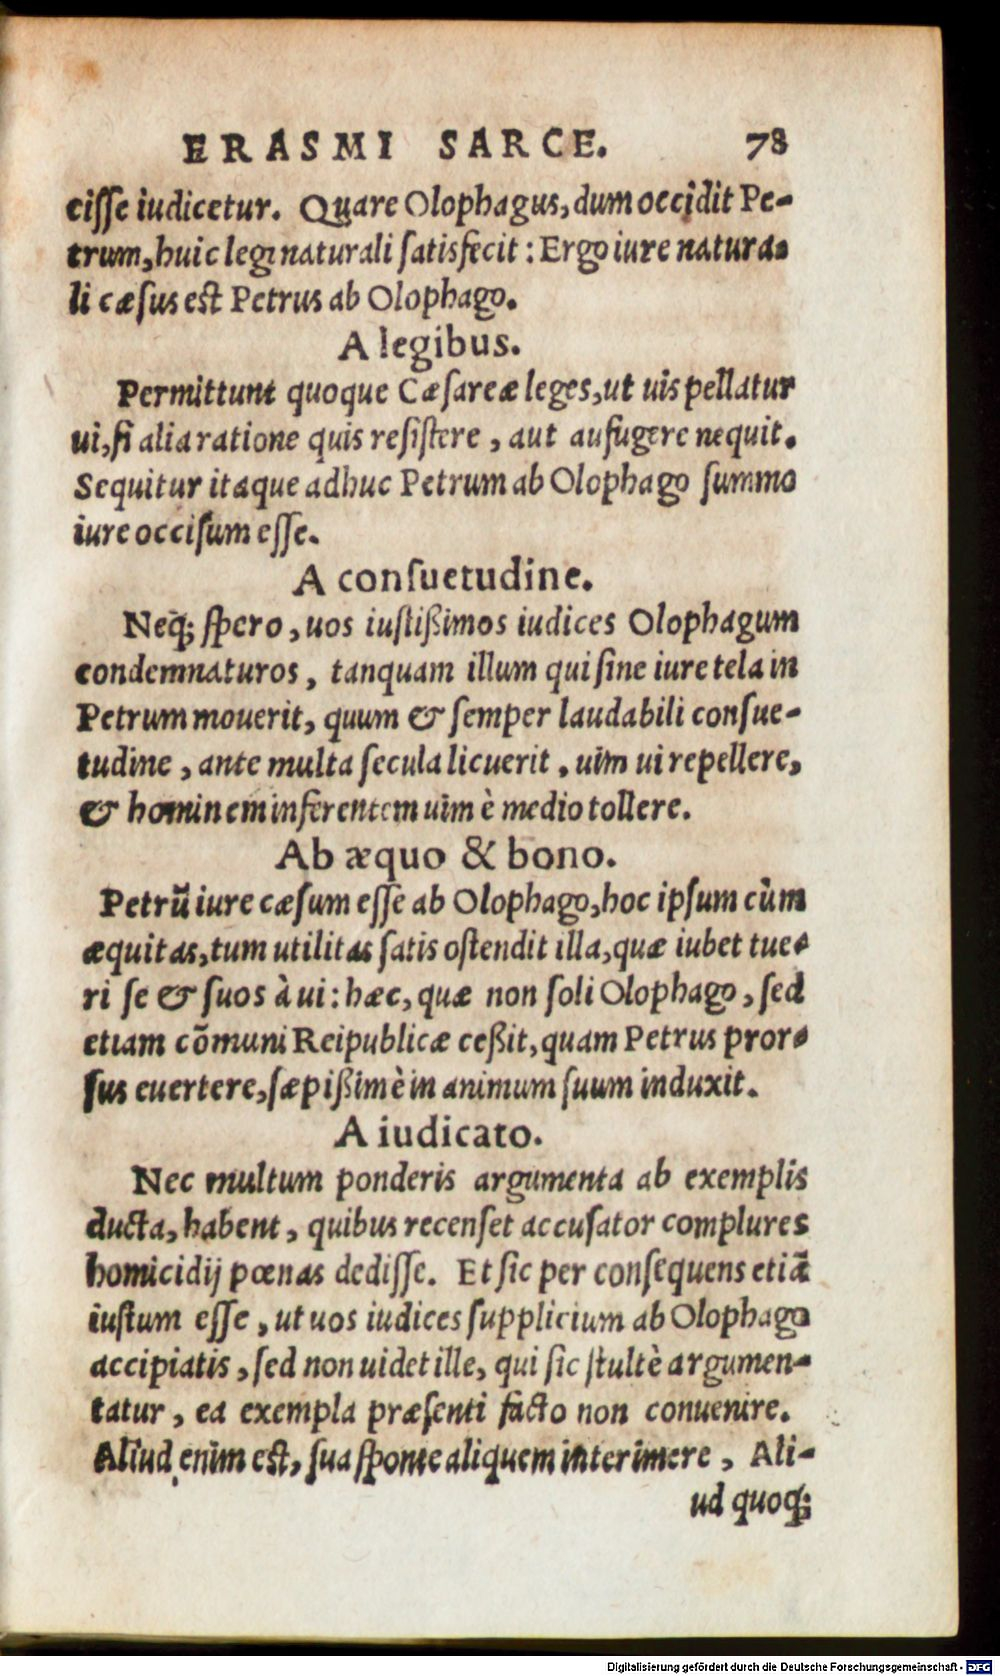 ERASMI SARCE. 78
ciſſe iudicetur. Quare Olophagus, dum occidit Pe-
trum, huic legi naturali ſatisfecit: Ergo iure natura-
li cæſus eſt Petrus ab Olophago.
A legibus.
Permittunt quoque Cæſareæ leges, ut uis pellatur
ui, ſi alia ratione quis reſiſtere, aut aufugere nequit.
Sequitur itaque adhuc Petrum ab Olophago ſummo
iure occiſum eſſe.
A conſuetudine.
Neq; ſpero, uos iuſtißimos iudices Olophagum
condemnaturos, tanquam illum qui ſine iure tela in
Petrum mouerit, quum & ſemper laudabili conſue-
tudine, ante multa ſecula licuerit, uim ui repellere,
& hominem inferentem uim è medio tollere.
Ab æquo & bono.
Petrū iure cæſum eſſe ab Olophago, hoc ipſum cùm
æquitas, tum utilitas ſatis oſtendit illa, quæ iubet tue-
ri ſe & ſuos à ui: hæc, quæ non ſoli Olophago, ſed
etiam cōmuni Reipublicæ ceßit, quam Petrus pror-
ſus euertere, ſæpißimè in animum ſuum induxit.
A iudicato.
Nec multum ponderis argumenta ab exemplis
ducta, habent, quibus recenſet accuſator complures
homicidij pœnas dediſſe. Et ſic per conſequens etiā
iuſtum eſſe, ut uos iudices ſupplicium ab Olophago
accipiatis, ſed non uidet ille, qui ſic ſtultè argumen-
tatur, ea exempla præſenti facto non conuenire.
Aliud enim eſt, ſua ſponte aliquem interimere, Ali-
ud quoq;
Digitalisierung gefördert durch die Deutsche Forschungsgemeinschaft - DFG